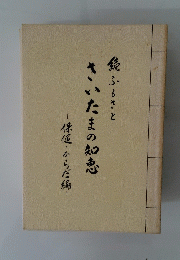 続ふるさと
さいたまの知恵
－保健・からだ編